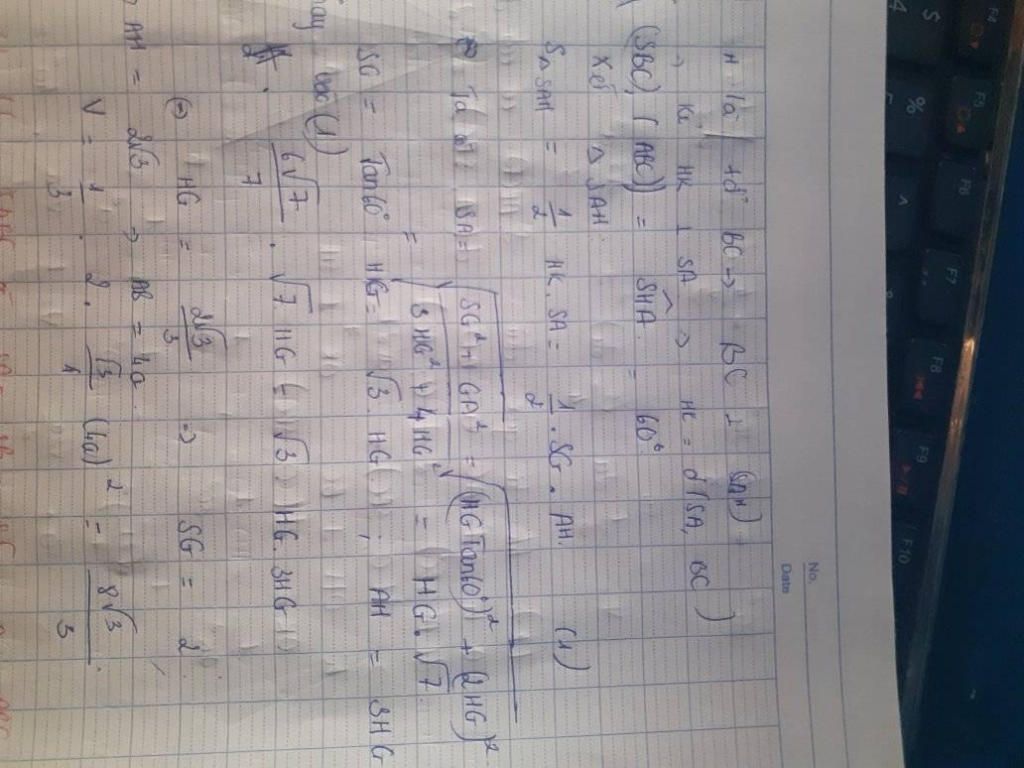 No.
Date
H là tđ BC → BC ⊥ (SAH)
→ Kẻ HK ⊥ SA => HK = d(SA, BC)
(SBC), (ABC)) = SHA = 60°
Xét △ SAH.
S△SAH = 1/2 HK. SA = 1/2 . SG . AH. (1)
Ta có SA = √(SG² + GA²) = √((HG Tan60°)² + (2HG)²
= √(3HG² + 4HG²) = HG. √7
SG = Tan60° HG = √3. HG ; AH = 3HG
Thay vào (1)
6√7/7 . √7 HG = √3 HG. 3HG
⇔ HG = 2√3/3 => SG = 2
AH = 2√3 => AB = 4a
V = 1/3 . 2. √3/4 (4a)² = 8√3/3.
F4
F5
F6
F7
F8
F9
F10
$
4
%
5
^